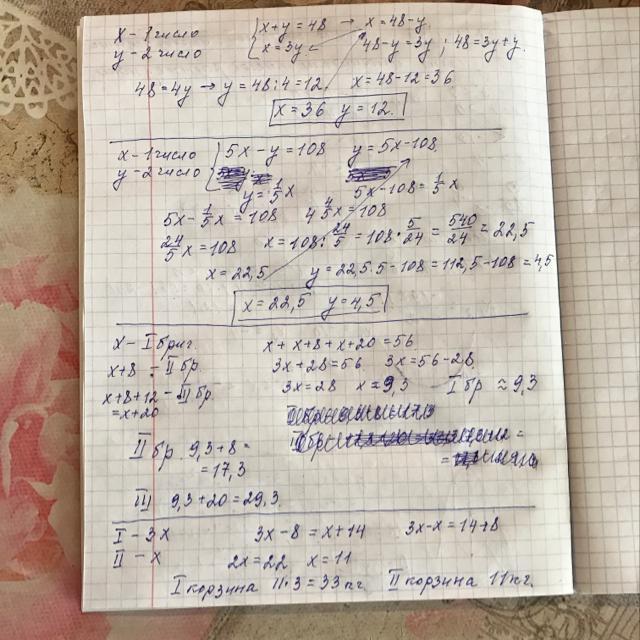 x - 1 число { x + y = 48 → x = 48 - y
y - 2 число { x = 3y 48 - y = 3y ; 48 = 3y + y
48 = 4y → y = 48 : 4 = 12. x = 48 - 12 = 36
x = 36 y = 12.
x - 1 число { 5x - y = 108 y = 5x - 108
y - 2 число
y = 1/5 x 5x - 108 = 1/5 x
5x - 1/5 x = 108 4 4/5 x = 108
24/5 x = 108 x = 108 : 24/5 = 108 · 5/24 = 540/24 = 22,5
x = 22,5 y = 22,5 · 5 - 108 = 112,5 - 108 = 4,5
x = 22,5 y = 4,5
x - I бриг. x + x + 8 + x + 20 = 56
x + 8 - II бр. 3x + 28 = 56 3x = 56 - 28
x + 8 + 12 - III бр. 3x = 28 x ≈ 9,3 I бр ≈ 9,3
= x + 20
II бр 9,3 + 8 =
= 17,3
III 9,3 + 20 = 29,3
I - 3x 3x - 8 = x + 14 3x - x = 14 + 8
II - x 2x = 22 x = 11
I корзина 11 · 3 = 33 кг. II корзина 11 кг.